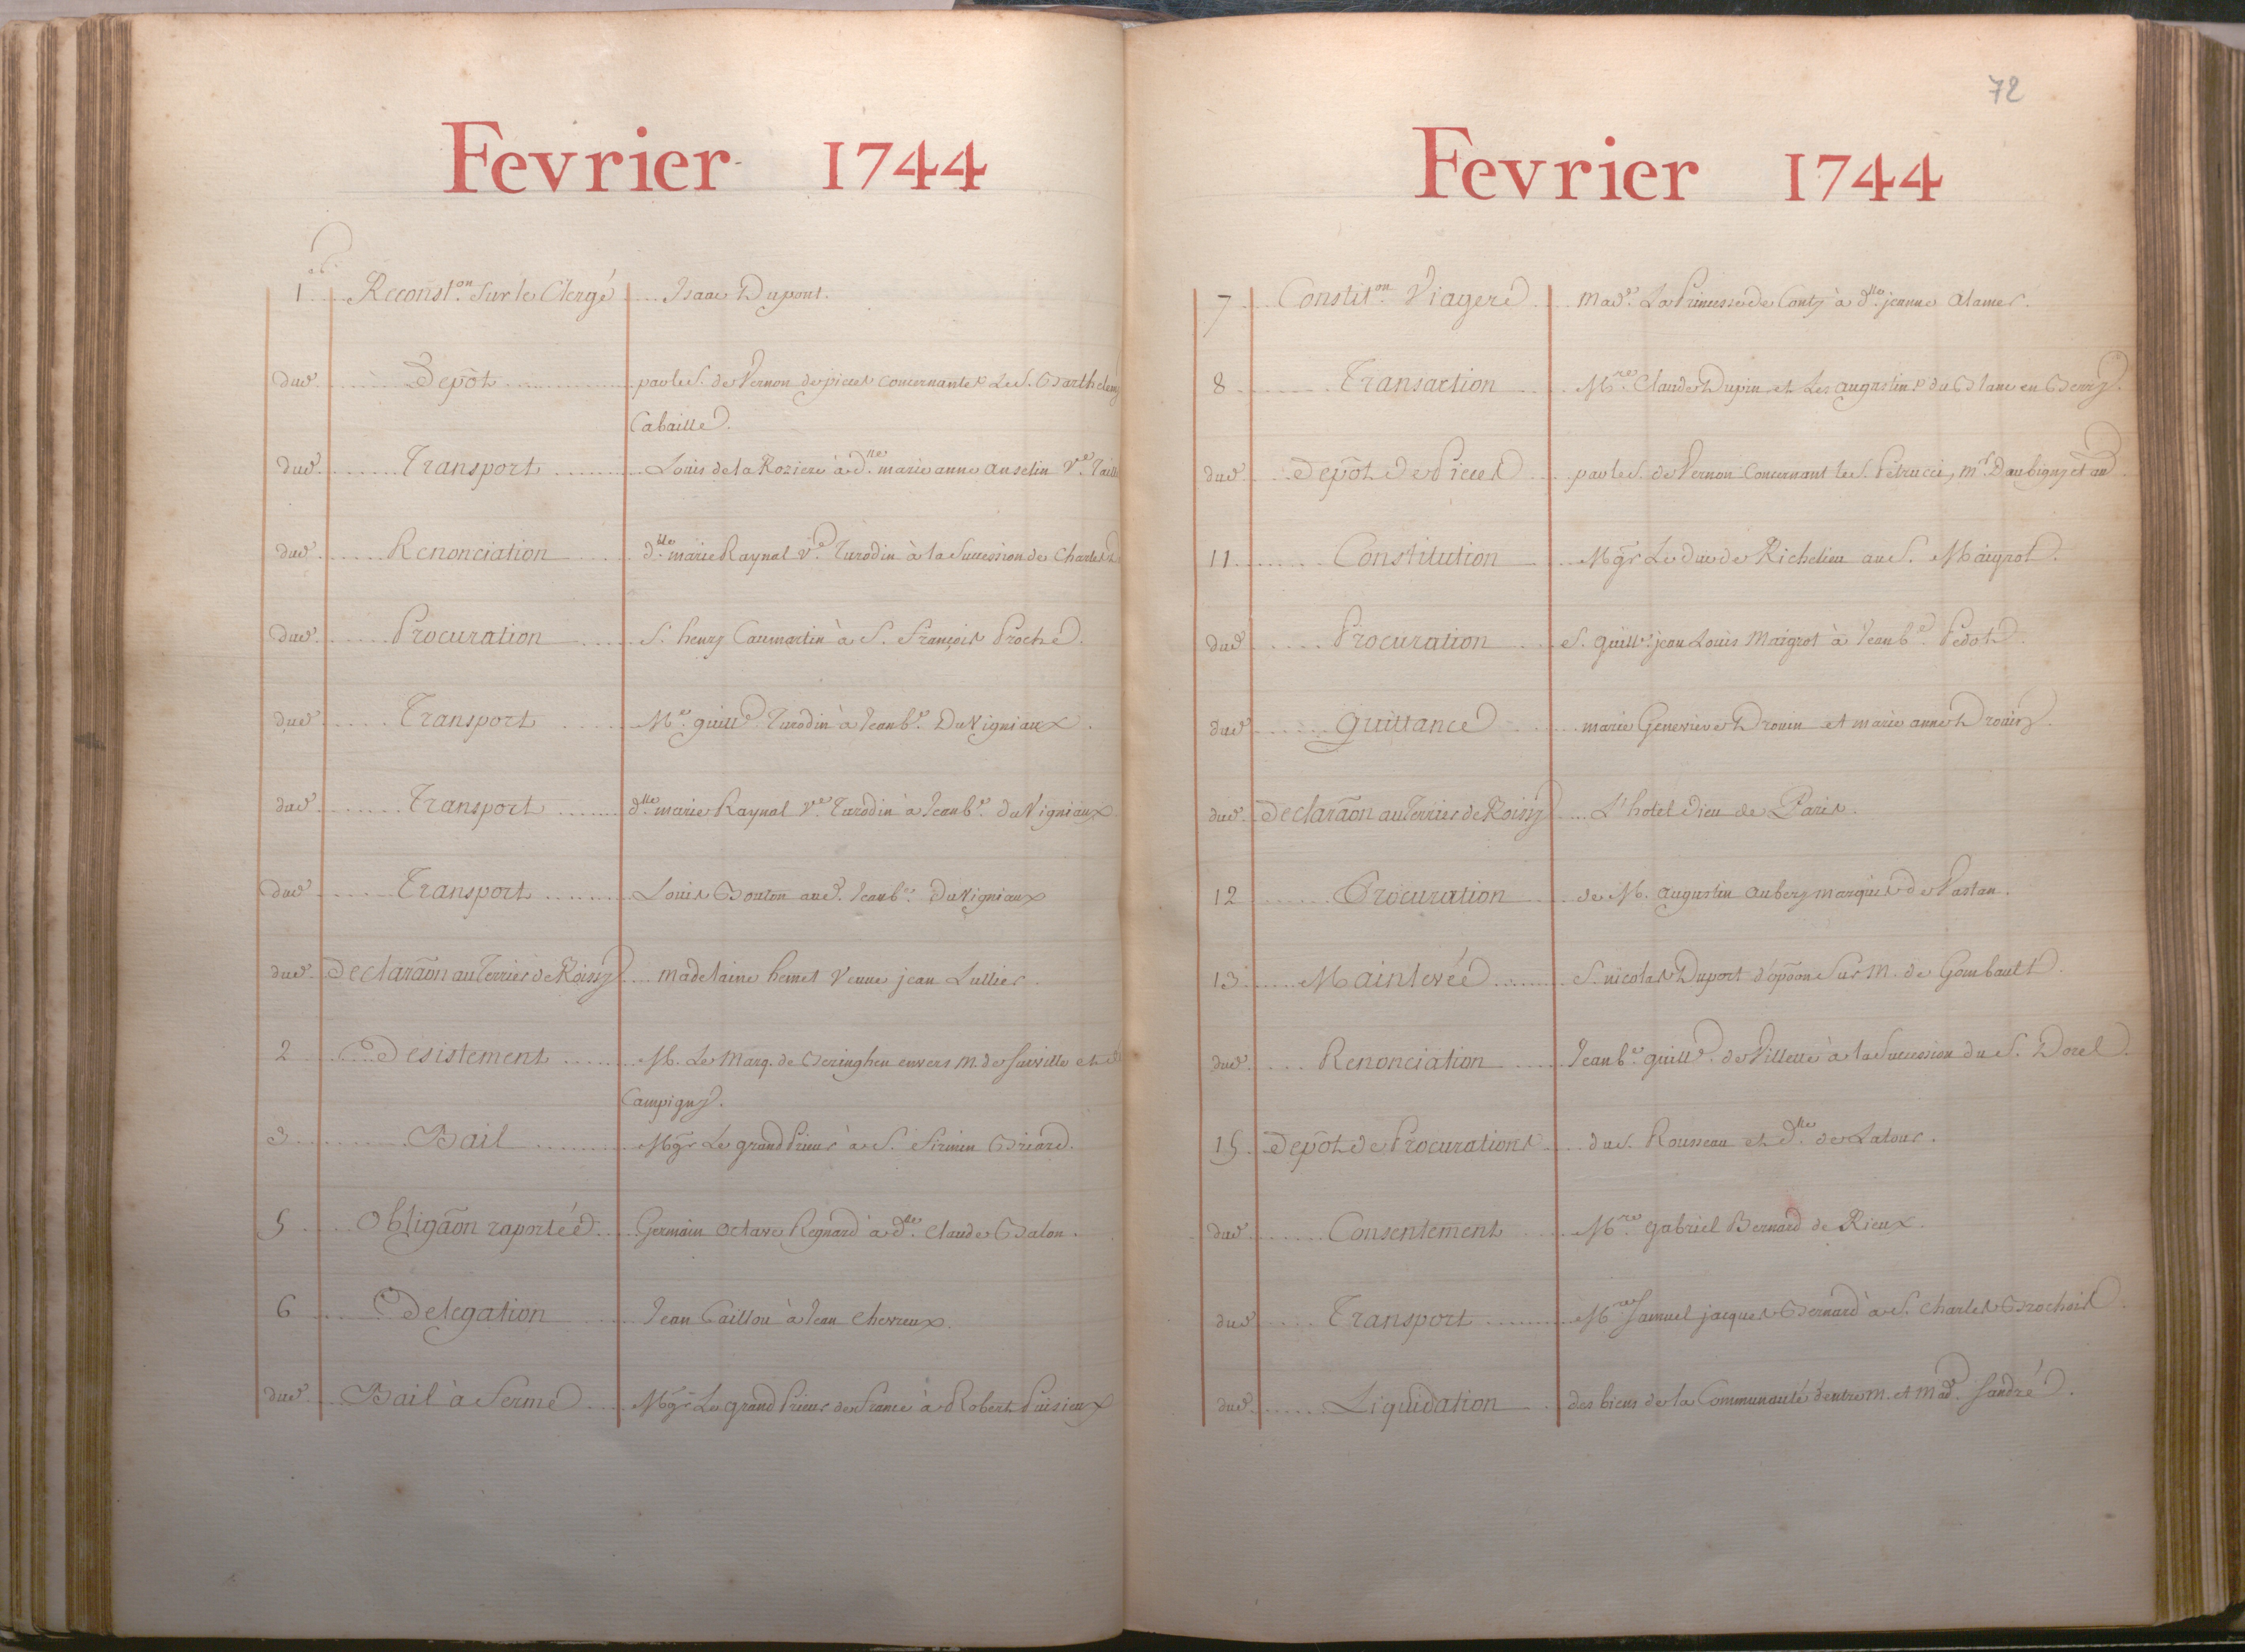 Fevrier 1744
1er Reconston. Sur le Clergé Isaac Dupont.
dud. Depôt par le S. de Vernon de pieces concernantes le S. Barthelemy
Cabaille.
dud. Transport Louis de la Roziere à dlle. marie anne anselin Ve.
dud. Renonciation dlle. marie Raynal Ve. Turodin à la Succession de Charles
dud. Procuration S. henry Caumartin à S. François Proché.
dud. Transport Me. guille. Turodin à Jean be. DuVigniaux.
dud. Transport dlle. marie Raynal Ve. Turodin à Jean be. duVigniaux
dud. Transport Louis Bouton aud. Jean be. DuVigniaux
dud. Declaraõn au Terrier de Roissy madelaine hemet Veuve jean Lullier.
2 Desistement M. Le Marq. de Beringhen envers m. de et
Campigny.
3 Bail Mgr Le grand Prieur à S. Firmin Briard.
5 Obligaõn raportée Germain Octave Regnard à dlle. Claude Balon.
6 Delegation Jean Caillou à Jean Chevreux.
dud. Bail à ferme Mgr Le grand Prieur de France à Robert Puisieux
72
Fevrier 1744
7 Constiton. Viagere Made. La Princesse de Conty à dlle. jeanne alamer.
8 Transaction Mre. Claude Dupin et Les augustins du Blanc en Berry.
dud. Depôt de Pieces par le S. de Vernon Concernant le S. Petrucci, mr. Daubigny et au
11 Constitution Mgr Le duc de Richelieu au S. Maigrot.
dud. Procuration S. guille. jean Louis Maigrot à Jean be. Pedot.
dud. Quittance marie Genevieve Drouin et marie anne Drouin.
dud. Declaraõn au Terrier de Roissy L'hotel Dieu de Paris.
12 Procuration de M. augustin aubery marquis de Vastan.
13 Mainlevée S. nicolas Duport d'opõon Sur M. de Gombault.
dud. Renonciation Jean be. guille. de Villette à la Succession du S. Dorel.
15 Depôt de Procurations du S. Rousseau et dlle. de Latour.
dud. Consentement Mre. gabriel Bernard de Rieux.
dud. Transport Mre Samuel jacques Bernard à S. Charles Brochois
dud. Liquidation des biens de la Communauté d'entre M. et Made. Sandré.